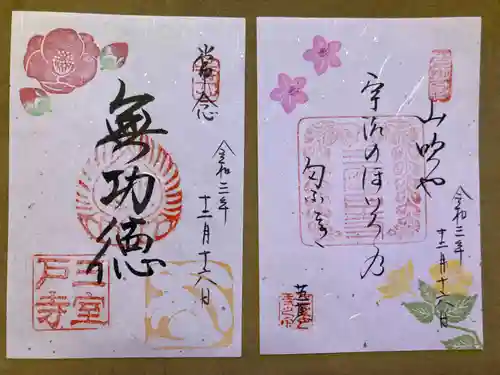 山吹や
宇治のほいろ乃
匂ふ時
芭蕉
令和三年
十二月十六日
無功徳
令和三年
十二月十六日
三室
戸寺